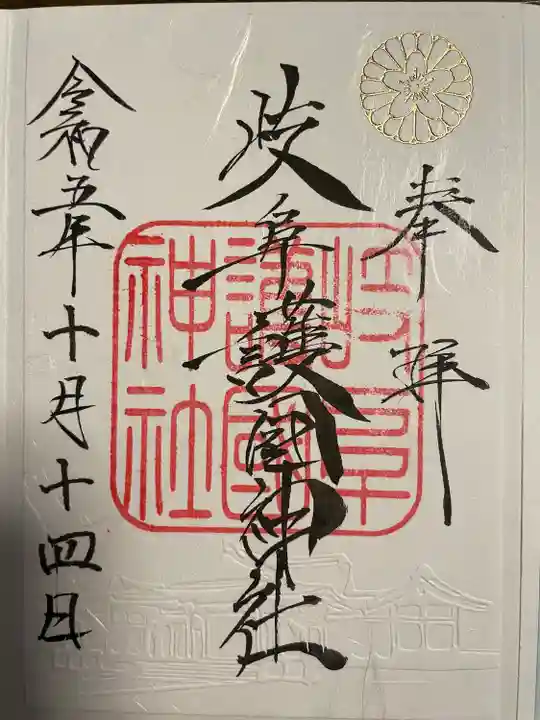 奉拝
岐阜護国神社
岐阜
護國
神社
令和五年十月十四日